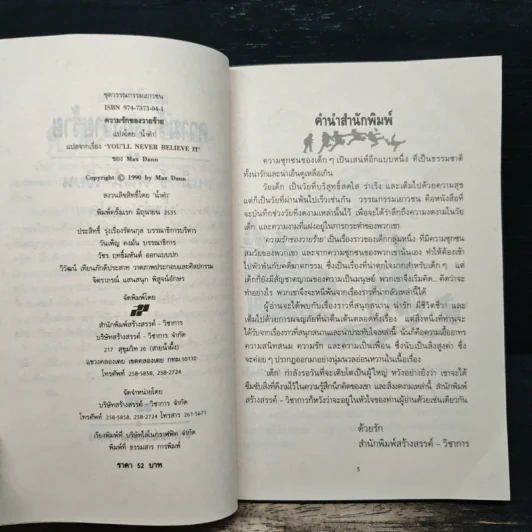 ชุดวรรณกรรมเยาวชน
ISBN 974-7373-04-1
ความรักของวายร้าย
แปลโดย 'น้ำค้า'
แปลจากเรื่อง "YOU'LL NEVER BELIEVE IT"
ของ Max Dann
Copyright © 1990 by Max Dann
สงวนลิขสิทธิ์โดย 'น้ำค้า'
พิมพ์ครั้งแรก มิถุนายน 2535
ประสิทธิ์ รุ่งเรืองรัตนกุล บรรณาธิการบริหาร
วันเพ็ญ คงมั่น บรรณาธิการ
วัชร ฤทธิ์มหันต์ ออกแบบปก
วิวัฒน์ เทียนภักดิประสาท วาดภาพประกอบและศิลปกรรม
จิตราภรณ์ แสนสนุก พิสูจน์อักษร
จัดพิมพ์โดย
สำนักพิมพ์สร้างสรรค์ - วิชาการ
บริษัทสร้างสรรค์ - วิชาการ จำกัด
217 สุขุมวิท 20 (สายน้ำผึ้ง)
แขวงคลองเตย เขตคลองเตย กทม 10110
โทรศัพท์ 258-5858, 258-2724
จัดจำหน่ายโดย
บริษัทสร้างสรรค์ - วิชาการ จำกัด
โทรศัพท์ 258-5858, 258-2724 โทรสาร 261-5671
เรียงพิมพ์ที่ บริษัทไล่ไนกราฟฟิค จำกัด
พิมพ์ที่ ธรรมสาร การพิมพ์
ราคา 52 บาท
คำนำสำนักพิมพ์
ความซุกซนของเด็ก ๆ เป็นเสน่ห์อีกแบบหนึ่ง ที่เป็นธรรมชาติ
ทั้งน่ารักและน่าเอ็นดูเหลือเกิน
วัยเด็ก เป็นวัยที่บริสุทธิ์สดใส ร่าเริง และเต็มไปด้วยความสุข
แต่ก็เป็นวัยที่ผ่านพ้นไปเร็วเช่นกัน วรรณกรรมเยาวชน คือหนังสือที่
จะบันทึกช่วงวัยที่งดงามเหล่านั้นไว้ เพื่อจะได้รำลึกถึงความงดงามในวัย
เด็ก และความงามที่แฝงอยู่ในการกระทำของพวกเขา
'ความรักของวายร้าย' เป็นเรื่องราวของเด็กกลุ่มหนึ่ง ที่มีความซุกซน
สมวัยของพวกเขา และจากความซุกซนของพวกเขานั่นเอง ทำให้ต้องเข้า
ไปพัวพันกับคดีฆาตกรรม ซึ่งเป็นเรื่องที่น่าตกใจมากสำหรับเด็ก ๆ แต่
เด็กก็ยังมีสัญชาตญาณของความเป็นมนุษย์ พวกเขาจึงเริ่มคิด... คิดว่าจะ
ทำอย่างไร พวกเขาจึงจะหนีพ้นจากเรื่องราวที่น่ากลัวเหล่านี้ได้
ผู้อ่านจะได้พบกับเรื่องราวที่สนุกสนาน น่ารัก มีชีวิตชีวา และ
เต็มไปด้วยการผจญภัยที่น่าตื่นเต้นตลอดทั้งเรื่อง แต่สิ่งหนึ่งที่ท่านจะ
ได้รับจากเรื่องราวที่สนุกสนานและน่าประทับใจเหล่านี้ นั่นก็คือความเอื้ออาทร
ความสนิทสนม ความรัก และความเป็นเพื่อน ซึ่งนับเป็นสิ่งสูงค่า ซึ่ง
จะค่อย ๆ ปรากฏออกมาอย่างนุ่มนวลอ่อนหวานในเนื้อเรื่อง
'เด็ก' กำลังรอวันที่จะเติบโตเป็นผู้ใหญ่ หวังอย่างยิ่งว่า เขาจะได้
ซึมซับสิ่งที่ดีงามไว้ในความรู้สึกนึกคิดของเขา และสิ่งงดงามเหล่านี้ สำนักพิมพ์
สร้างสรรค์ - วิชาการก็หวังว่าจะอยู่ในหัวใจของท่านผู้อ่านด้วยเช่นเดียวกัน
ด้วยรัก
สำนักพิมพ์สร้างสรรค์ - วิชาการ
5